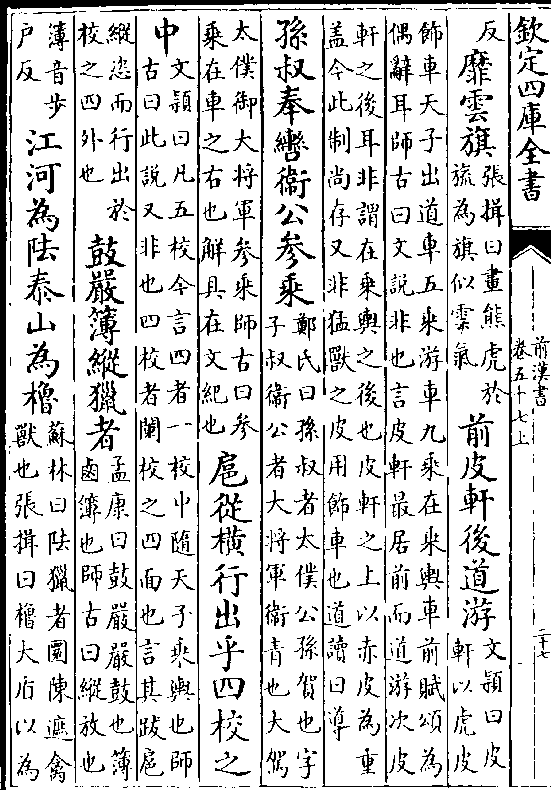 欽定四庫全書
前漢書
卷五十七上
二十七
反
靡雲旗
張揖曰畫熊虎於
旒為旗似雲氣
前皮軒後道游
文頴曰皮
軒以虎皮
飾車天子出道車五乘游車九乘在乘輿車前賦頌為
偶辭耳師古曰文說非也言皮軒最居前而道游次皮
軒之後耳非謂在乘輿之後也皮軒之上以赤皮為重
盖今此制尚存又非猛獸之皮用飾車也道讀曰導
孫叔奉轡衛公參乘
鄭氏曰孫叔者太僕公孫賀也字
子叔衛公者大將軍衛青也大駕
太僕御大將軍參乘師古曰參
乘在車之右也解具在文紀也
扈從橫行出乎四校之
中
文頴曰凡五校今言四者一校中隨天子乘輿也師
古曰此說又非也四校者闌校之四面也言其跋扈
縱恣而行出於
校之四外也
鼓嚴簿縱獵者
孟康曰鼓嚴嚴鼓也簿
鹵簿也師古曰縱放也
簿音步
戶反
江河為阹泰山為櫓
蘇林曰阹獵者圜陳遮禽
獸也張揖曰櫓大盾以為